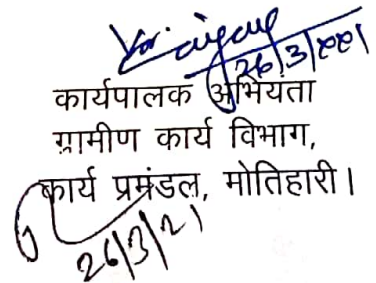 26/3/2021
कार्यपालक अभियंता
ग्रामीण कार्य विभाग,
कार्य प्रमंडल, मोतिहारी।
26/3/21